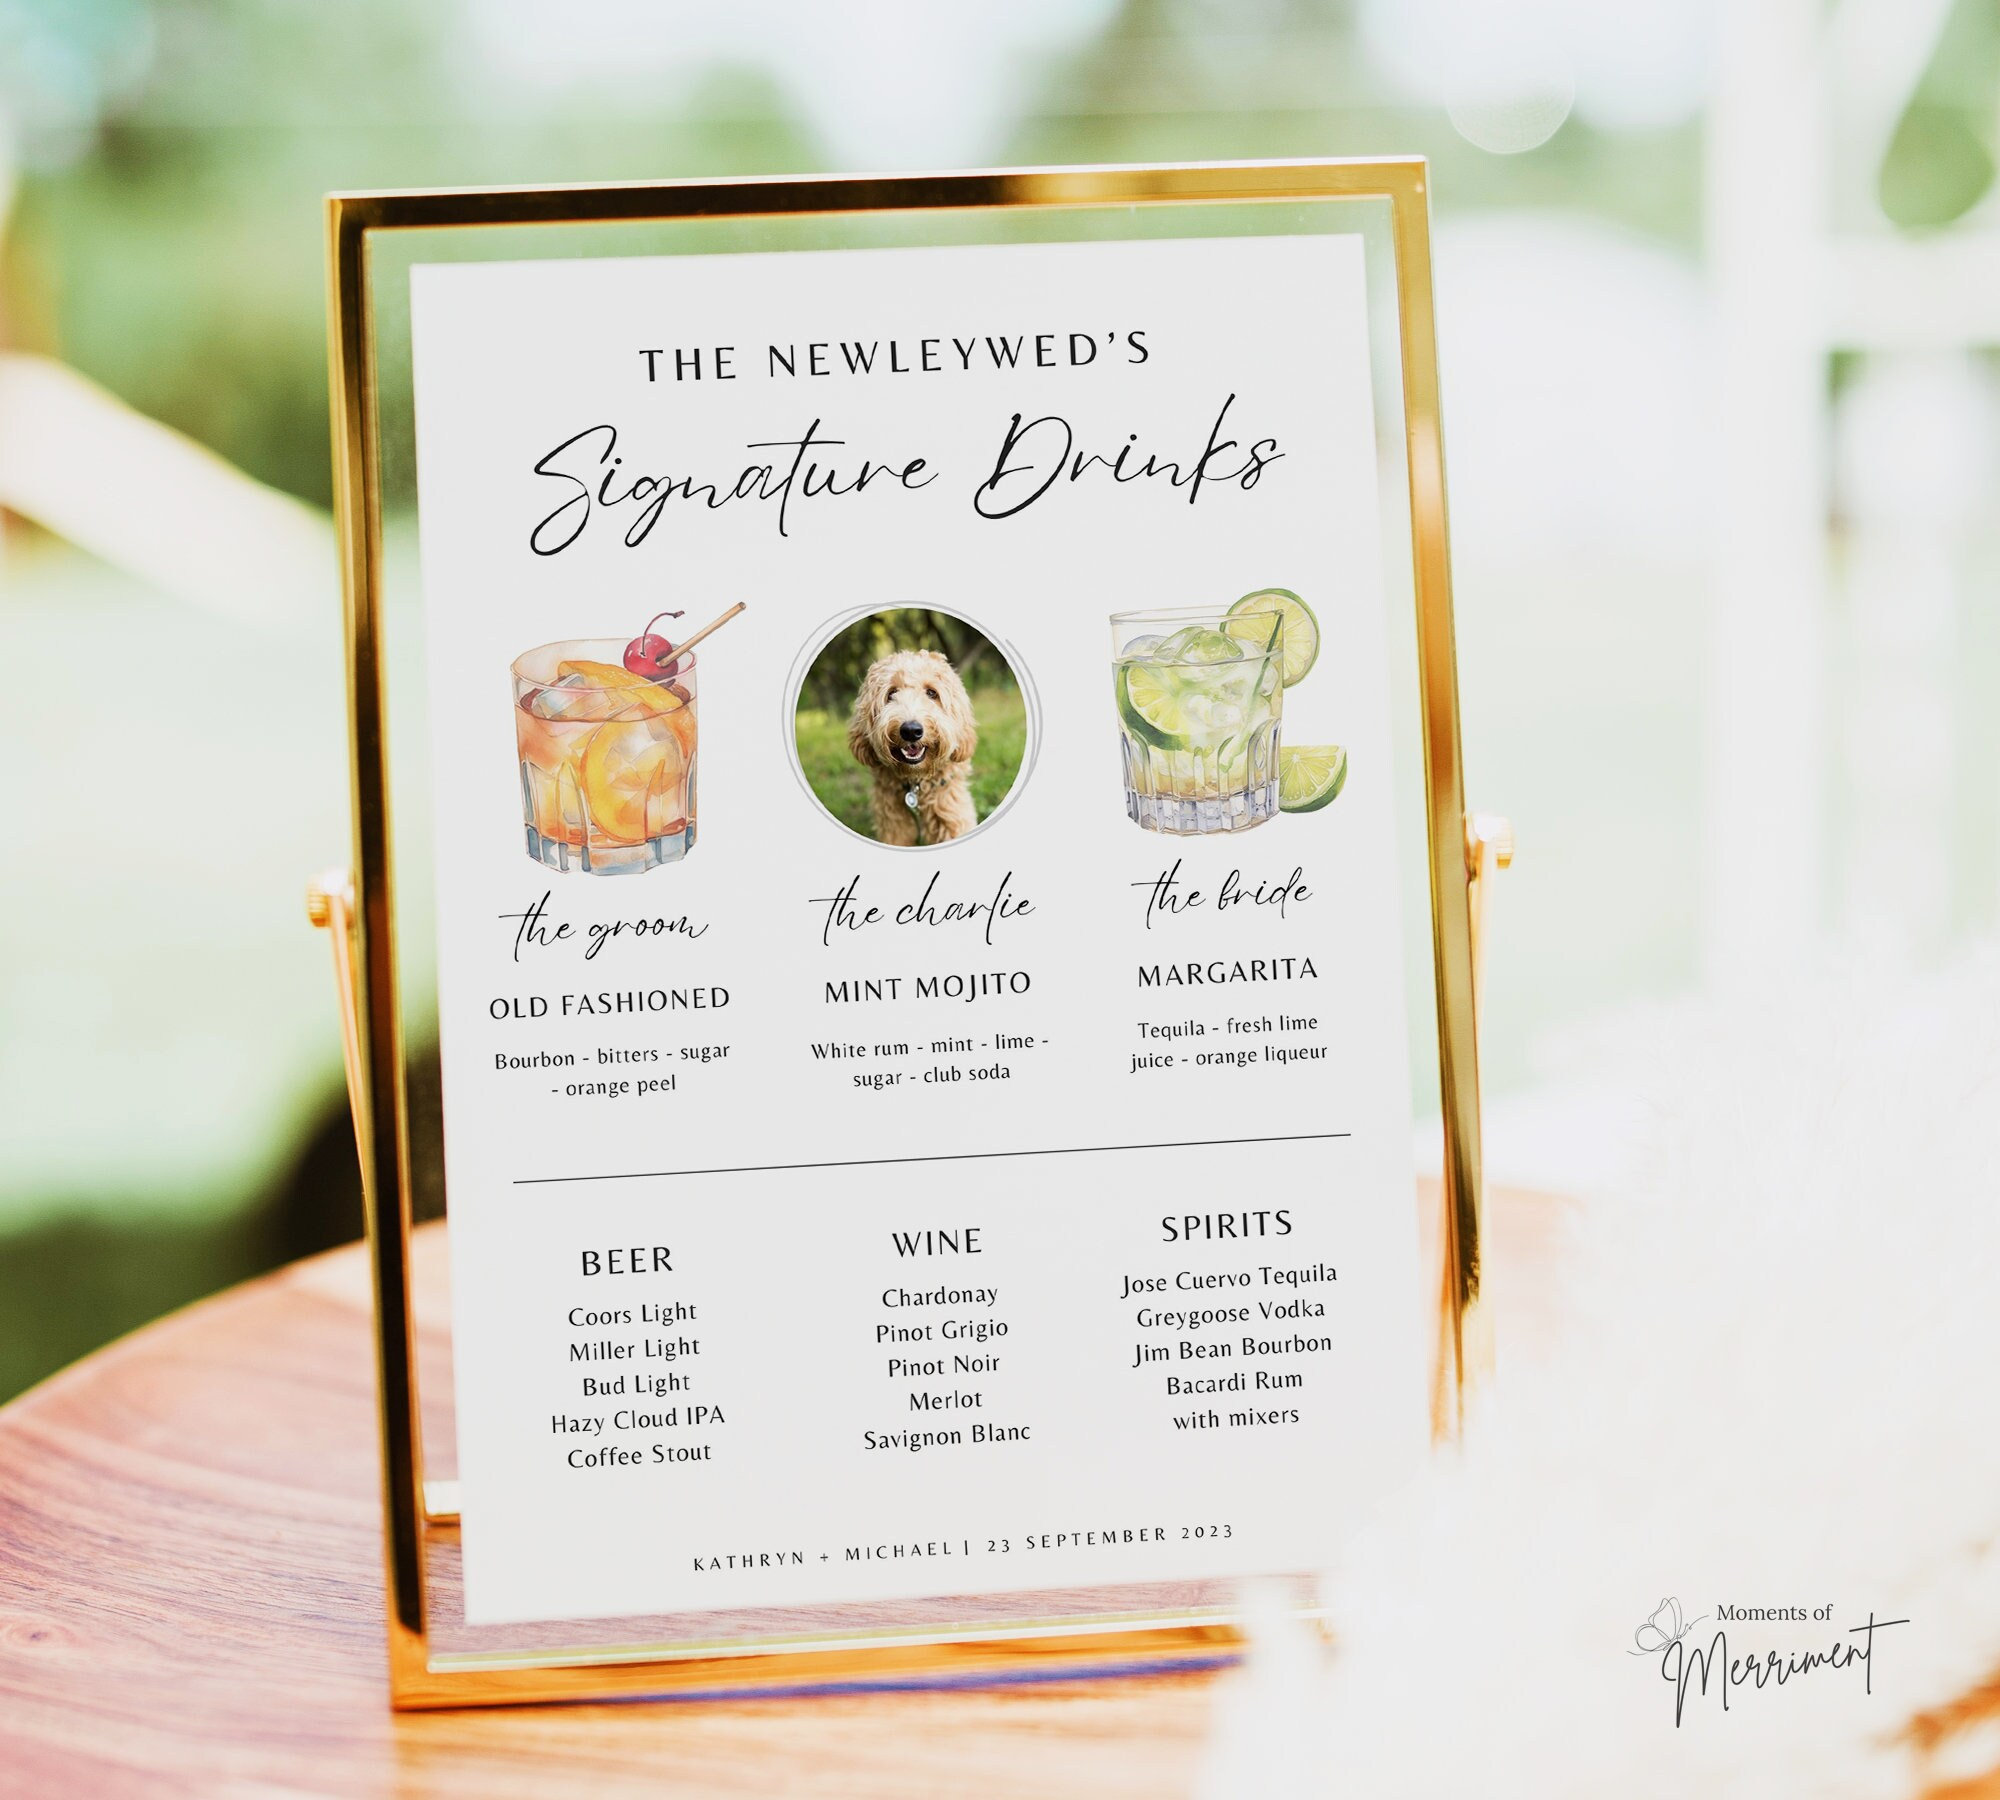 THE NEWLEYWED'S
Signature Drinks
the groom
OLD FASHIONED
Bourbon - bitters - sugar
- orange peel
the charlie
MINT MOJITO
White rum - mint - lime -
sugar - club soda
the bride
MARGARITA
Tequila - fresh lime
juice - orange liqueur
BEER
Coors Light
Miller Light
Bud Light
Hazy Cloud IPA
Coffee Stout
WINE
Chardonay
Pinot Grigio
Pinot Noir
Merlot
Savignon Blanc
SPIRITS
Jose Cuervo Tequila
Greygoose Vodka
Jim Bean Bourbon
Bacardi Rum
with mixers
KATHRYN + MICHAEL | 23 SEPTEMBER 2023
Moments of
Merriment